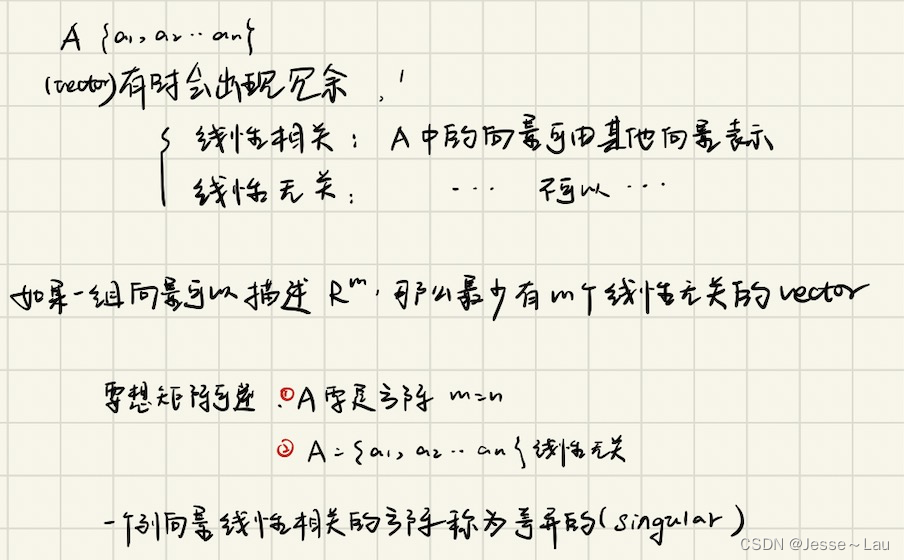 A {a₁, a₂ ·· aₙ}
(vector)有时会出现冗余,
线性相关: A中的向量可由其他向量表示
线性无关: ··· 不可以 ···
如果一组向量可以描述 Rᵐ, 那么最少有m个线性无关的vector
要想矩阵可逆: ① A要是方阵 m=n
② A={a₁, a₂ ·· aₙ} 线性无关
一个列向量线性相关的方阵称为奇异的(singular)
CSDN @Jesse~Lau